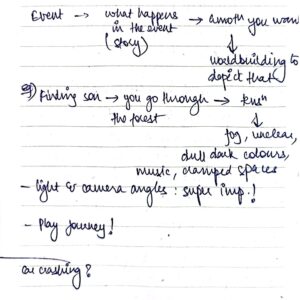 Event → what happens in the event (story) → emotn you want
↓
worldbuilding to depict that
eg) Finding son → you go through the forest → tensn
↓
fog, unclear,
dull dark colours,
music, cramped spaces
- light & camera angles : super imp.!
- Play Journey!
car crashing?